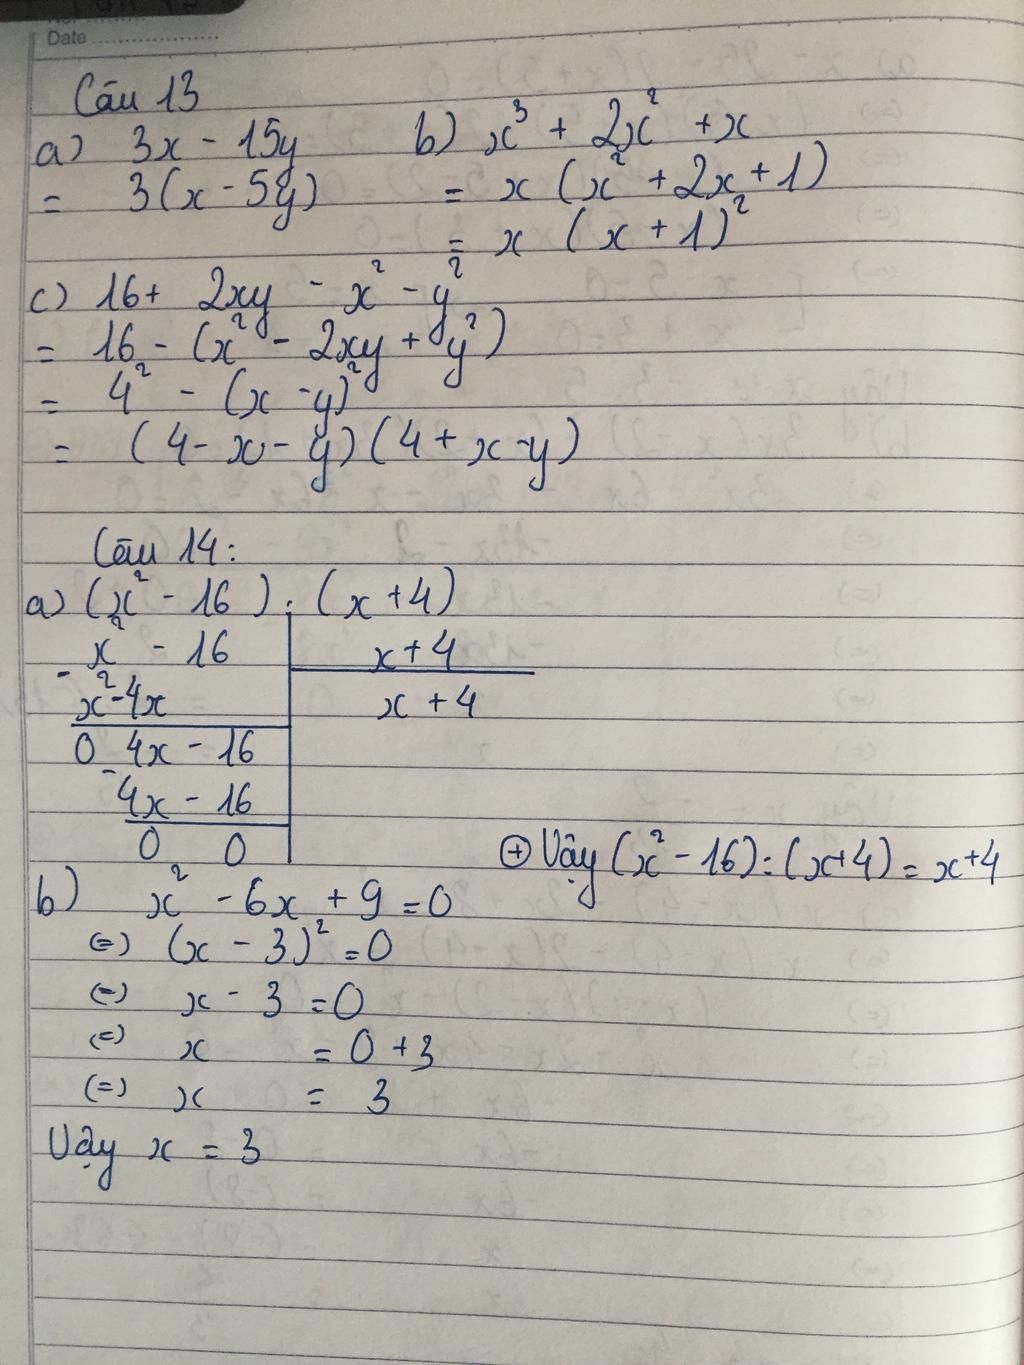 Date
Câu 13
a) 3x - 15y
= 3(x - 5y)
b) x³ + 2x² + x
= x (x² + 2x + 1)
= x (x + 1)²
c) 16 + 2xy - x² - y²
= 16 - (x² - 2xy + y²)
= 4² - (x - y)²
= (4 - x - y)(4 + x - y)
Câu 14:
a) (x² - 16) : (x + 4)
x² - 16 | x + 4
- x² - 4x | x + 4
0 4x - 16
- 4x - 16
0 0
⊕ Vậy (x² - 16) : (x + 4) = x + 4
b) x² - 6x + 9 = 0
(=) (x - 3)² = 0
(=) x - 3 = 0
(=) x = 0 + 3
(=) x = 3
Vậy x = 3